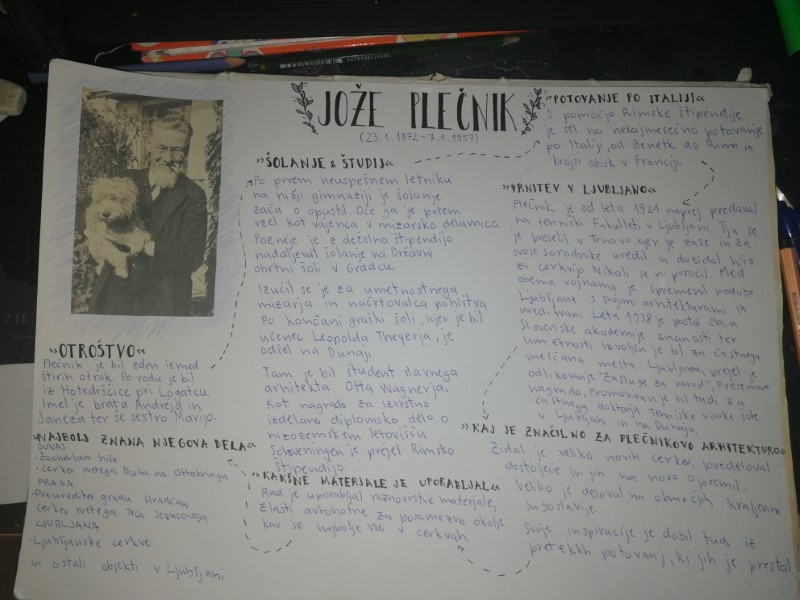 JOŽE PLEČNIK
(23.1.1872 - 7.1.1957)
»OTROŠTVO«
Plečnik je bil eden izmed
štirih otrok. Po rodu je bil
iz Hotedršice pri Logatcu.
Imel je brata Andreja in
Janeza ter še sestro Marijo.
»ŠOLANJE & ŠTUDIJ«
Po prvem neuspešnem letniku
na nižji gimnaziji je šolanje
začel opustil. Oče ga je potem
vzel kot vajenca v mizarsko delavnico.
Pozneje je z deželno štipendijo
nadaljeval šolanje na Državni
obrtni šoli v Gradcu.
Izučil se je za umetnostnega
mizarja in načrtovalca pohištva
Po končani graški šoli, kjer je bil
učenec Leopolda Theyerja, je
odšel na Dunaj.
Tam je bil študent slavnega
arhitekta Otta Wagnerja.
Kot nagrado za izvrstno
izdelano diplomsko delo o
nizozemskem letovišču
Scheveningen je prejel Rimsko
štipendijo.
»POTOVANJE PO ITALIJI«
S pomočjo Rimske štipendije
je šel na nekajmesečno potovanje
po Italiji, od Benetk do Rima in
krajši obisk v Franciji.
»VRNITEV V LJUBLJANO«
Plečnik je od leta 1921 naprej predaval
na tehniški fakulteti v Ljubljani. Tja se
je preselil v Trnovo, kjer je zase in za
svoje sorodnike uredil in dozidal hišo
za cerkvijo. Nikoli se ni poročil. Med
obema vojnama, je spremenil podobo
Ljubljane s svojimi arhitekturami in
ureditvami. Leta 1938 je postal član
Slovenske akademije znanosti ter
umetnosti. Izvoljen je bil za častnega
meščana mesta Ljubljana, prejel je
odlikovanje "Zasluge za narod", Prešernovo
nagrado. Promoviran je bil tudi za
častnega doktorja Tehniške visoke šole
v Ljubljani in na Dunaju.
»KAJ JE ZNAČILNO ZA PLEČNIKOVO ARHITEKTURO«
Zidal je veliko novih cerkev, predeloval
obstoječe in jih na novo opremil.
Veliko je deloval na območjih kraljevine
Jugoslavije.
Svoje inspiracije je dobil tudi iz
preteklih potovanj, ki jih je prestal.
»KAKŠNE MATERJALE JE UPORABLJAL«
Rad je uporabljal raznovrstne materjale,
zlasti avtohotne za posamezno okolje
kar se najbolje vidi v cerkvah.
»NAJBOLJ ZNANA NJEGOVA DELA«
DUNAJ
- Zacherlova hiša
- cerkev svetega Duha na Ottakringu
PRAGA
- Preureditev gradu Hradčan
- cerkev svetega srca Jezusovega
LJUBLJANA
- Ljubljanske cerkve
in ostali objekti v Ljubljani